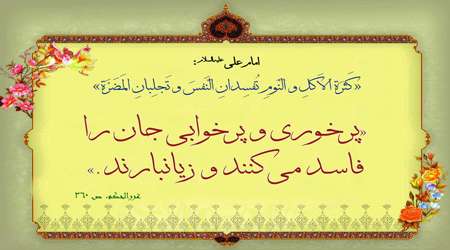 امام علی علیه‌السلام:
«کَثرَةُ الاَکلِ وَ النَومِ تُفسِدانِ النَفسَ وَ تَجلِبانِ المَضَرَّة»
«پرخوری و پرخوابی جان را
فاسد می‌کنند و زیانبارند.»
غررالحکم، ص ۳۶۰